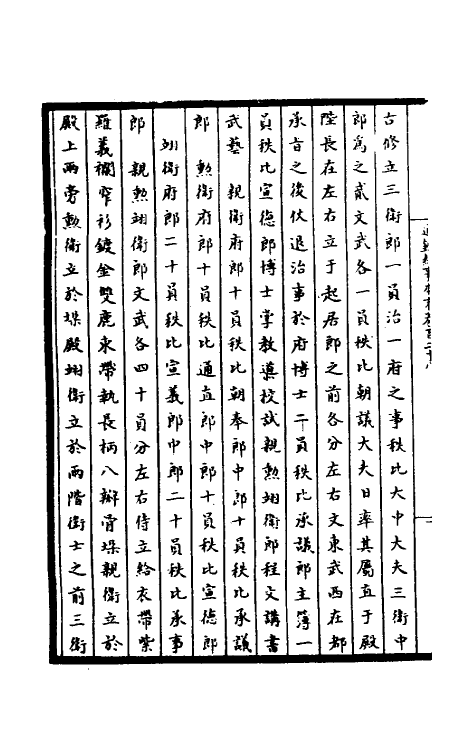 古修立三衛郎一員治一府之事秩比大中大夫三衛中
郎爲之貳文武各一員秩比朝議大夫日率其屬直于殿
陛長在左右立于起居郎之前各分左右文東武西在都
承旨之後伏退治事於府博士二員秩比承議郎主簿一
員秩比宣德郎博士掌教導校試親勲翊衛郎程文講書
武藝　親衛府郎十員秩比朝奉郎中郎十員秩比承議
郎　勲衛府郎十員秩比通直郎中郎十員秩比宣德郎
翊衛府郎二十員秩比宣義郎中郎二十員秩比承事
郎　親勲翊衛郎文武各四十員分左右侍立給衣帶紫
羅義襴窄衫鍍金雙鹿束帶執長柄八瓣骨朶親衛立於
殿上兩旁勲衛立於堞殿翊衛立於兩階衛士之前三衛